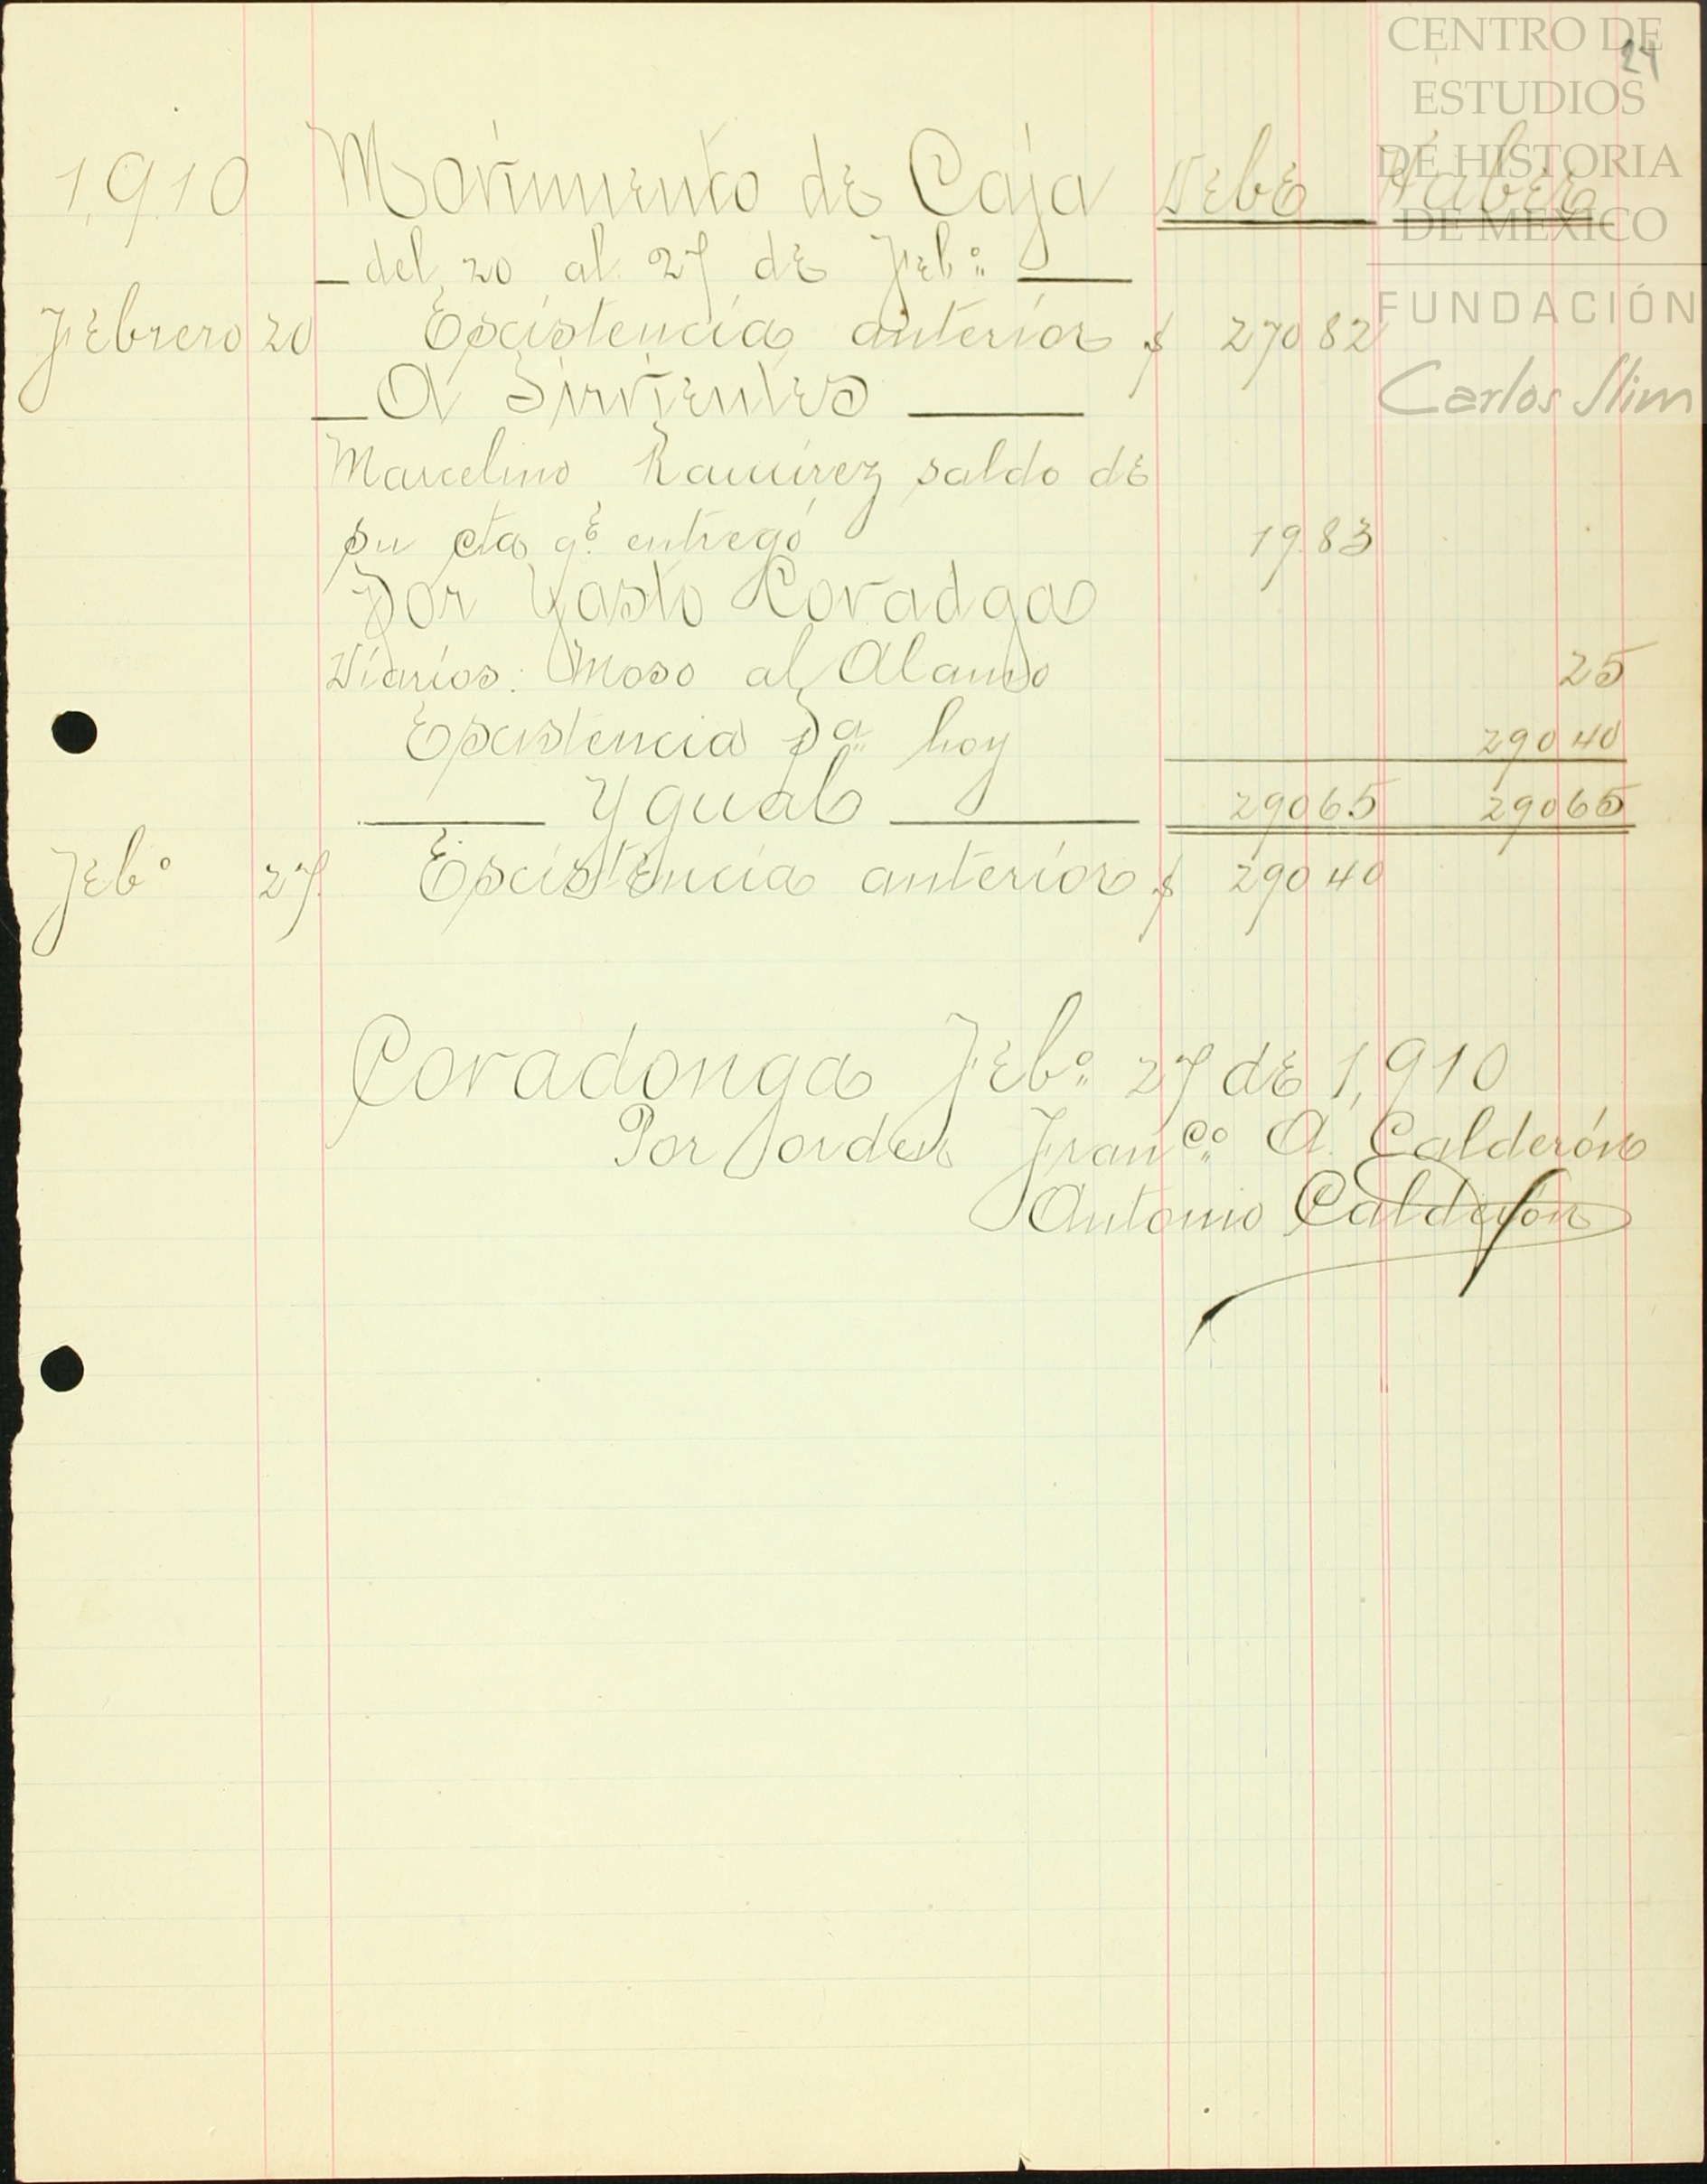 CENTRO DE
ESTUDIOS
DE HISTORIA
DE MÉXICO
FUNDACIÓN
Carlos Slim
24
1,910 Movimiento de Caja Debe Haber
del 20 al 27 de Febº
Febrero 20 Epcistencia anterior $ 270 82
A Sirvientes
Marcelino Ramírez saldo de
su cta qe entregó 19 83
Por Gasto Covadga
Diarios: Moso al Alamo 25
Epcistencia pa hoy 290 40
Ygual 290 65 290 65
Febº 27 Epcistencia anterior $ 290 40
Covadonga Febº 27 de 1,910
Por orden Franco A. Calderón
Antonio Calderón